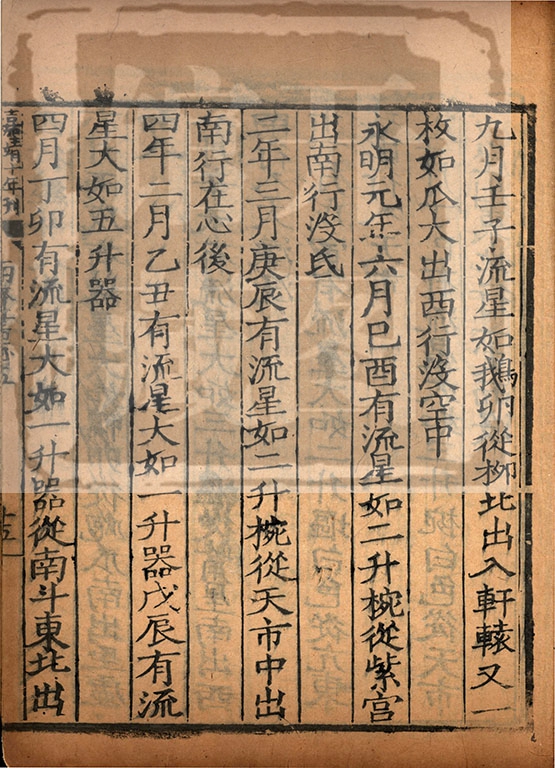 九月壬子流星如鵝卵從栁北出入軒轅又一
枚如瓜大出西行沒空中
永明元年六月巳酉有流星如二升椀從紫宫
出南行沒氐
二年三月庚辰有流星如二升椀從天市中出
南行在心後
四年二月乙丑有流星大如一升器戊辰有流
星大如五升器
四月丁卯有流星大如一升器從南斗東北出
嘉靖十年刊